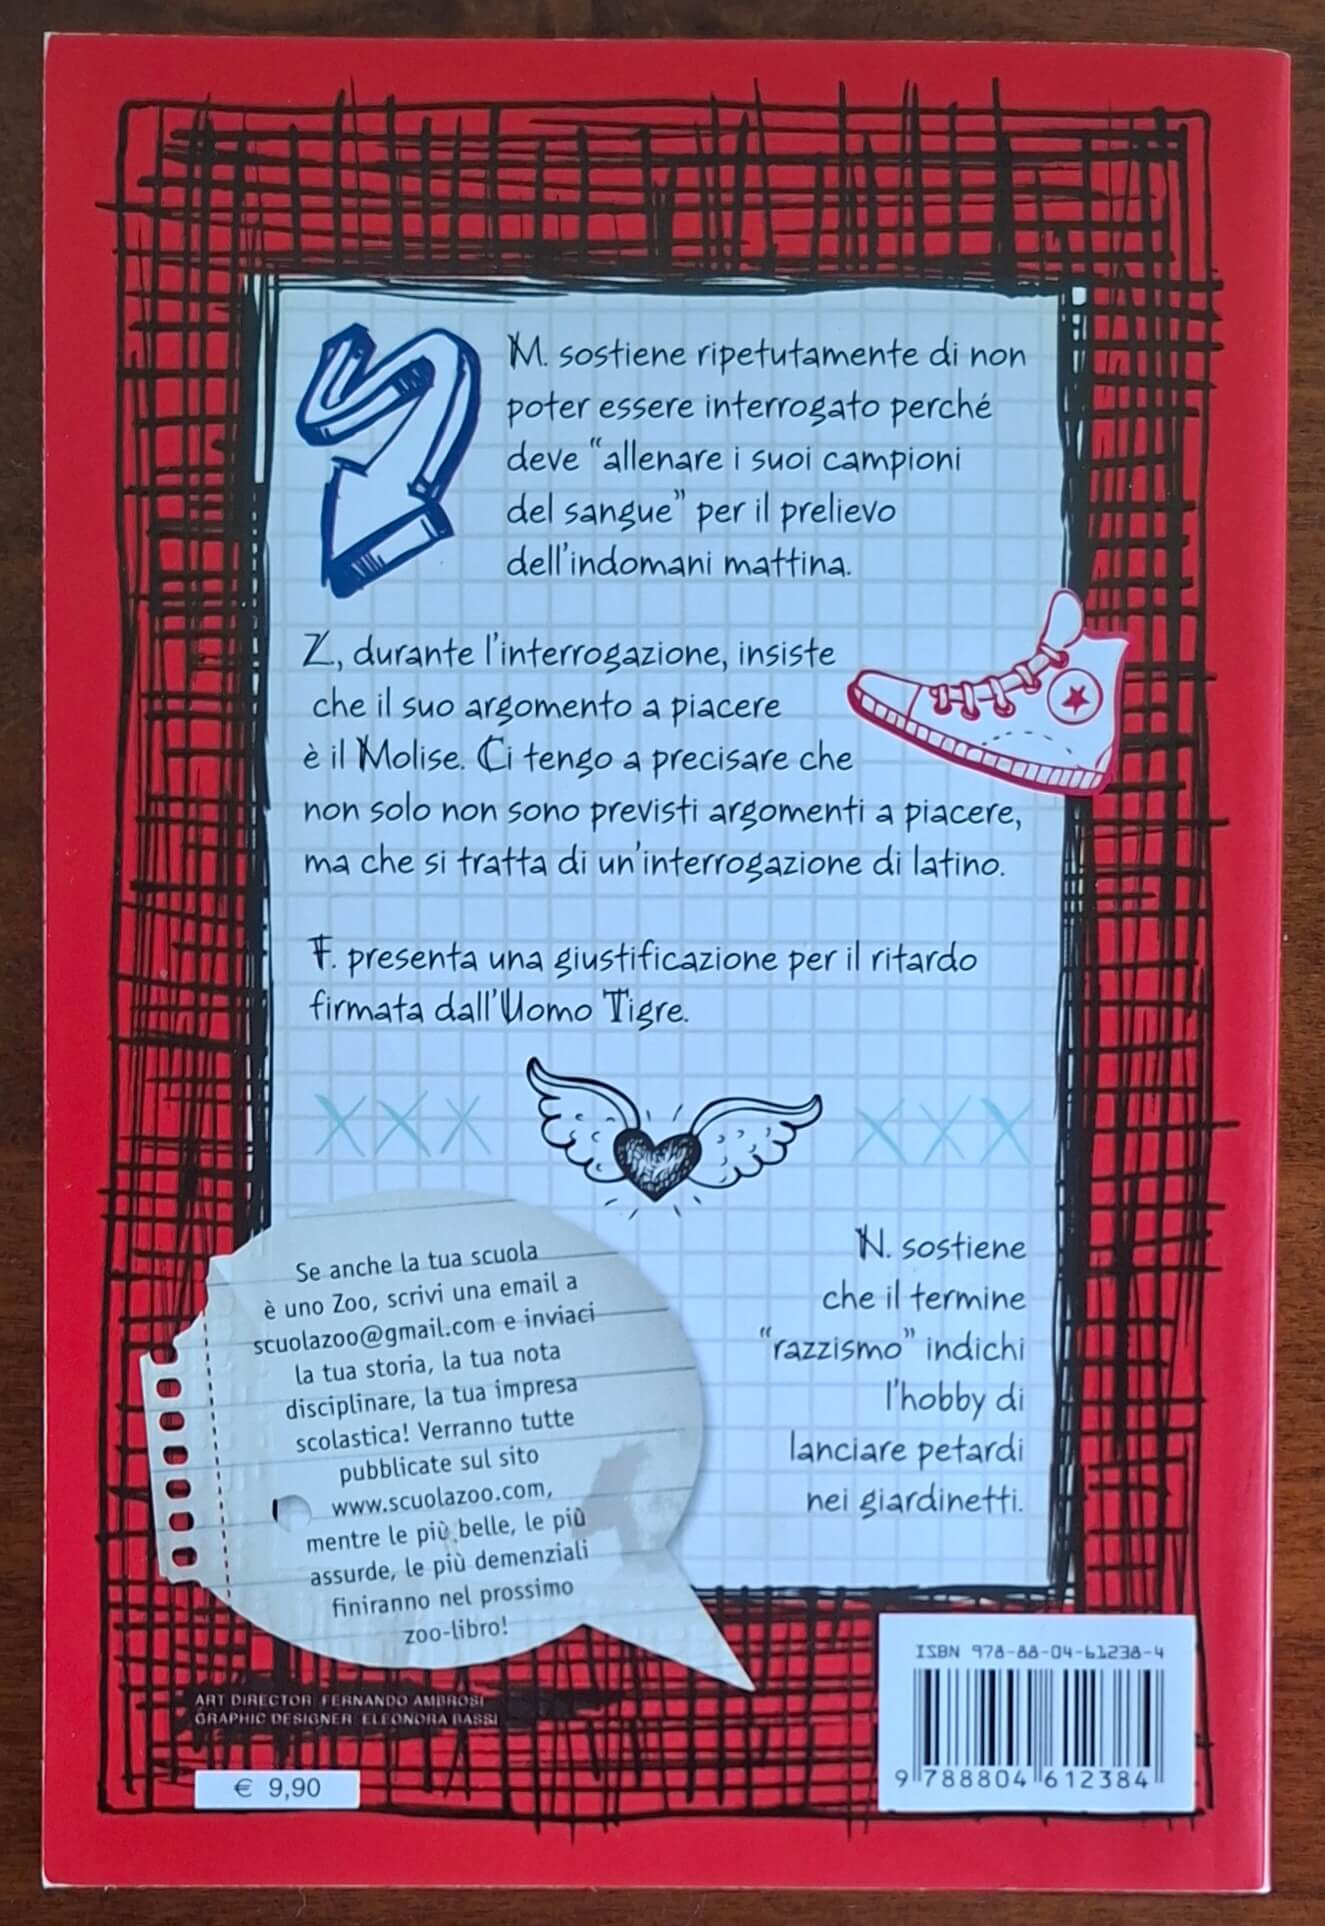 M. sostiene ripetutamente di non
poter essere interrogato perché
deve “allenare i suoi campioni
del sangue” per il prelievo
dell'indomani mattina.
Z., durante l'interrogazione, insiste
che il suo argomento a piacere
è il Molise. Ci tengo a precisare che
non solo non sono previsti argomenti a piacere,
ma che si tratta di un'interrogazione di latino.
F. presenta una giustificazione per il ritardo
firmata dall'Uomo Tigre.
XXX
XXX
N. sostiene
che il termine
“razzismo” indichi
l'hobby di
lanciare petardi
nei giardinetti.
Se anche la tua scuola
è uno Zoo, scrivi una email a
scuolazoo@gmail.com e inviaci
la tua storia, la tua nota
disciplinare, la tua impresa
scolastica! Verranno tutte
pubblicate sul sito
www.scuolazoo.com,
mentre le più belle, le più
assurde, le più demenziali
finiranno nel prossimo
zoo-libro!
ART DIRECTOR FERNANDO AMBROSI
GRAPHIC DESIGNER ELEONORA BASSI
€ 9,90
ISBN 978-88-04-61238-4
9 788804 612384